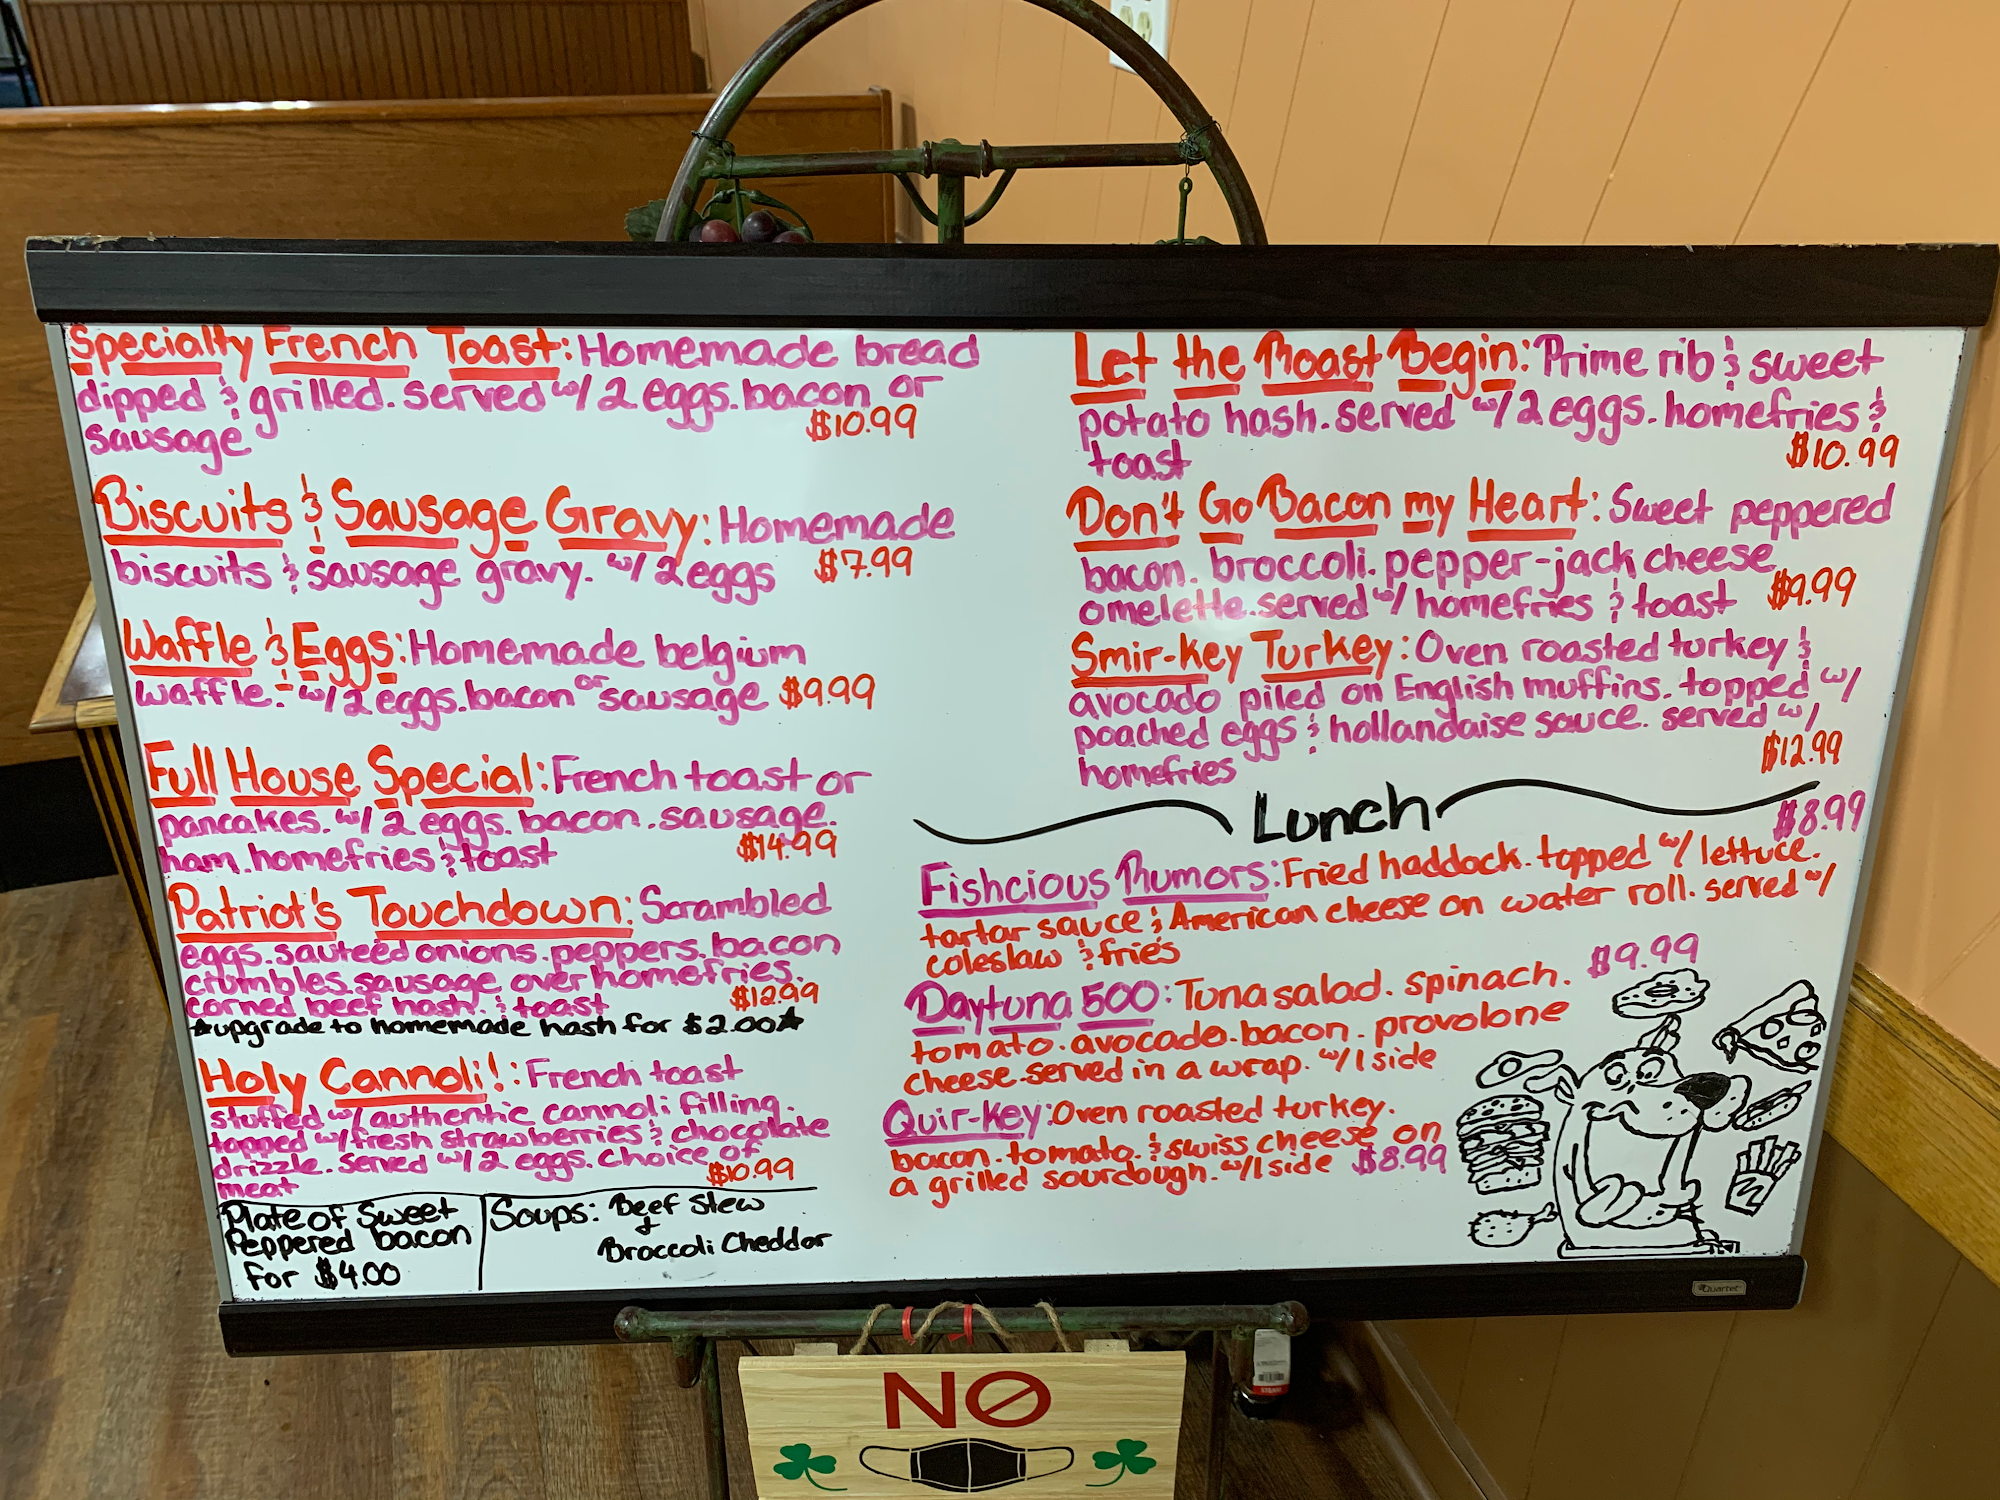 Specialty French Toast: Homemade bread
dipped & grilled. served w/ 2 eggs. bacon or
sausage $10.99
Biscuits & Sausage Gravy: Homemade
biscuits & sausage gravy. w/ 2 eggs $7.99
Waffle & Eggs: Homemade belgium
waffle. w/ 2 eggs. bacon or sausage $9.99
Full House Special: French toast or
pancakes. w/ 2 eggs. bacon. sausage.
ham. homefries & toast $14.99
Patriot's Touchdown: Scrambled
eggs. sauteéd onions. peppers. bacon
crumbles. sausage over homefries.
corned beef hash. & toast $12.99
★upgrade to homemade hash for $2.00★
Holy Cannoli!: French toast
stuffed w/ authentic cannoli filling.
topped w/ fresh strawberries & chocolate
drizzle. served w/ 2 eggs. choice of
meat $10.99
Plate of Sweet
Peppered bacon
for $4.00
Soups: Beef Stew
&
Broccoli Cheddar
Let the Roast Begin: Prime rib & sweet
potato hash. served w/ 2 eggs. homefries &
toast $10.99
Don't Go Bacon my Heart: Sweet peppered
bacon. broccoli. pepper-jack cheese
omelette. served w/ homefries & toast $9.99
Smir-key Turkey: Oven roasted turkey &
avocado piled on English muffins. topped w/
poached eggs & hollandaise sauce. served w/
homefries $12.99
Lunch
$8.99
Fishcious Rumors: Fried haddock. topped w/ lettuce.
tartar sauce & American cheese on water roll. served w/
coleslaw & fries
Daytuna 500: Tuna salad. spinach. $9.99
tomato. avocado. bacon. provolone
cheese. served in a wrap. w/ 1 side
Quir-key: Oven roasted turkey.
bacon. tomato. & swiss cheese on
a grilled sourdough. w/ 1 side $8.99
Quartet
NO